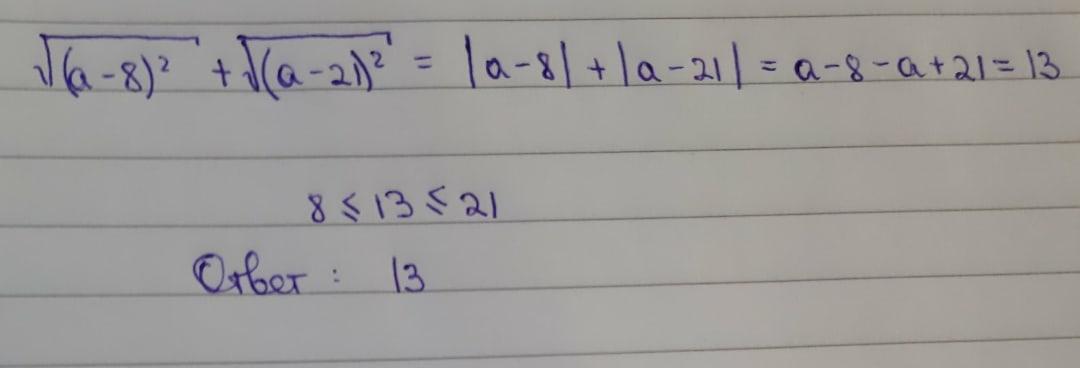 √(a-8)² + √(a-21)² = |a-8| + |a-21| = a-8-a+21 = 13
8 ⩽ 13 ⩽ 21
Ответ : 13